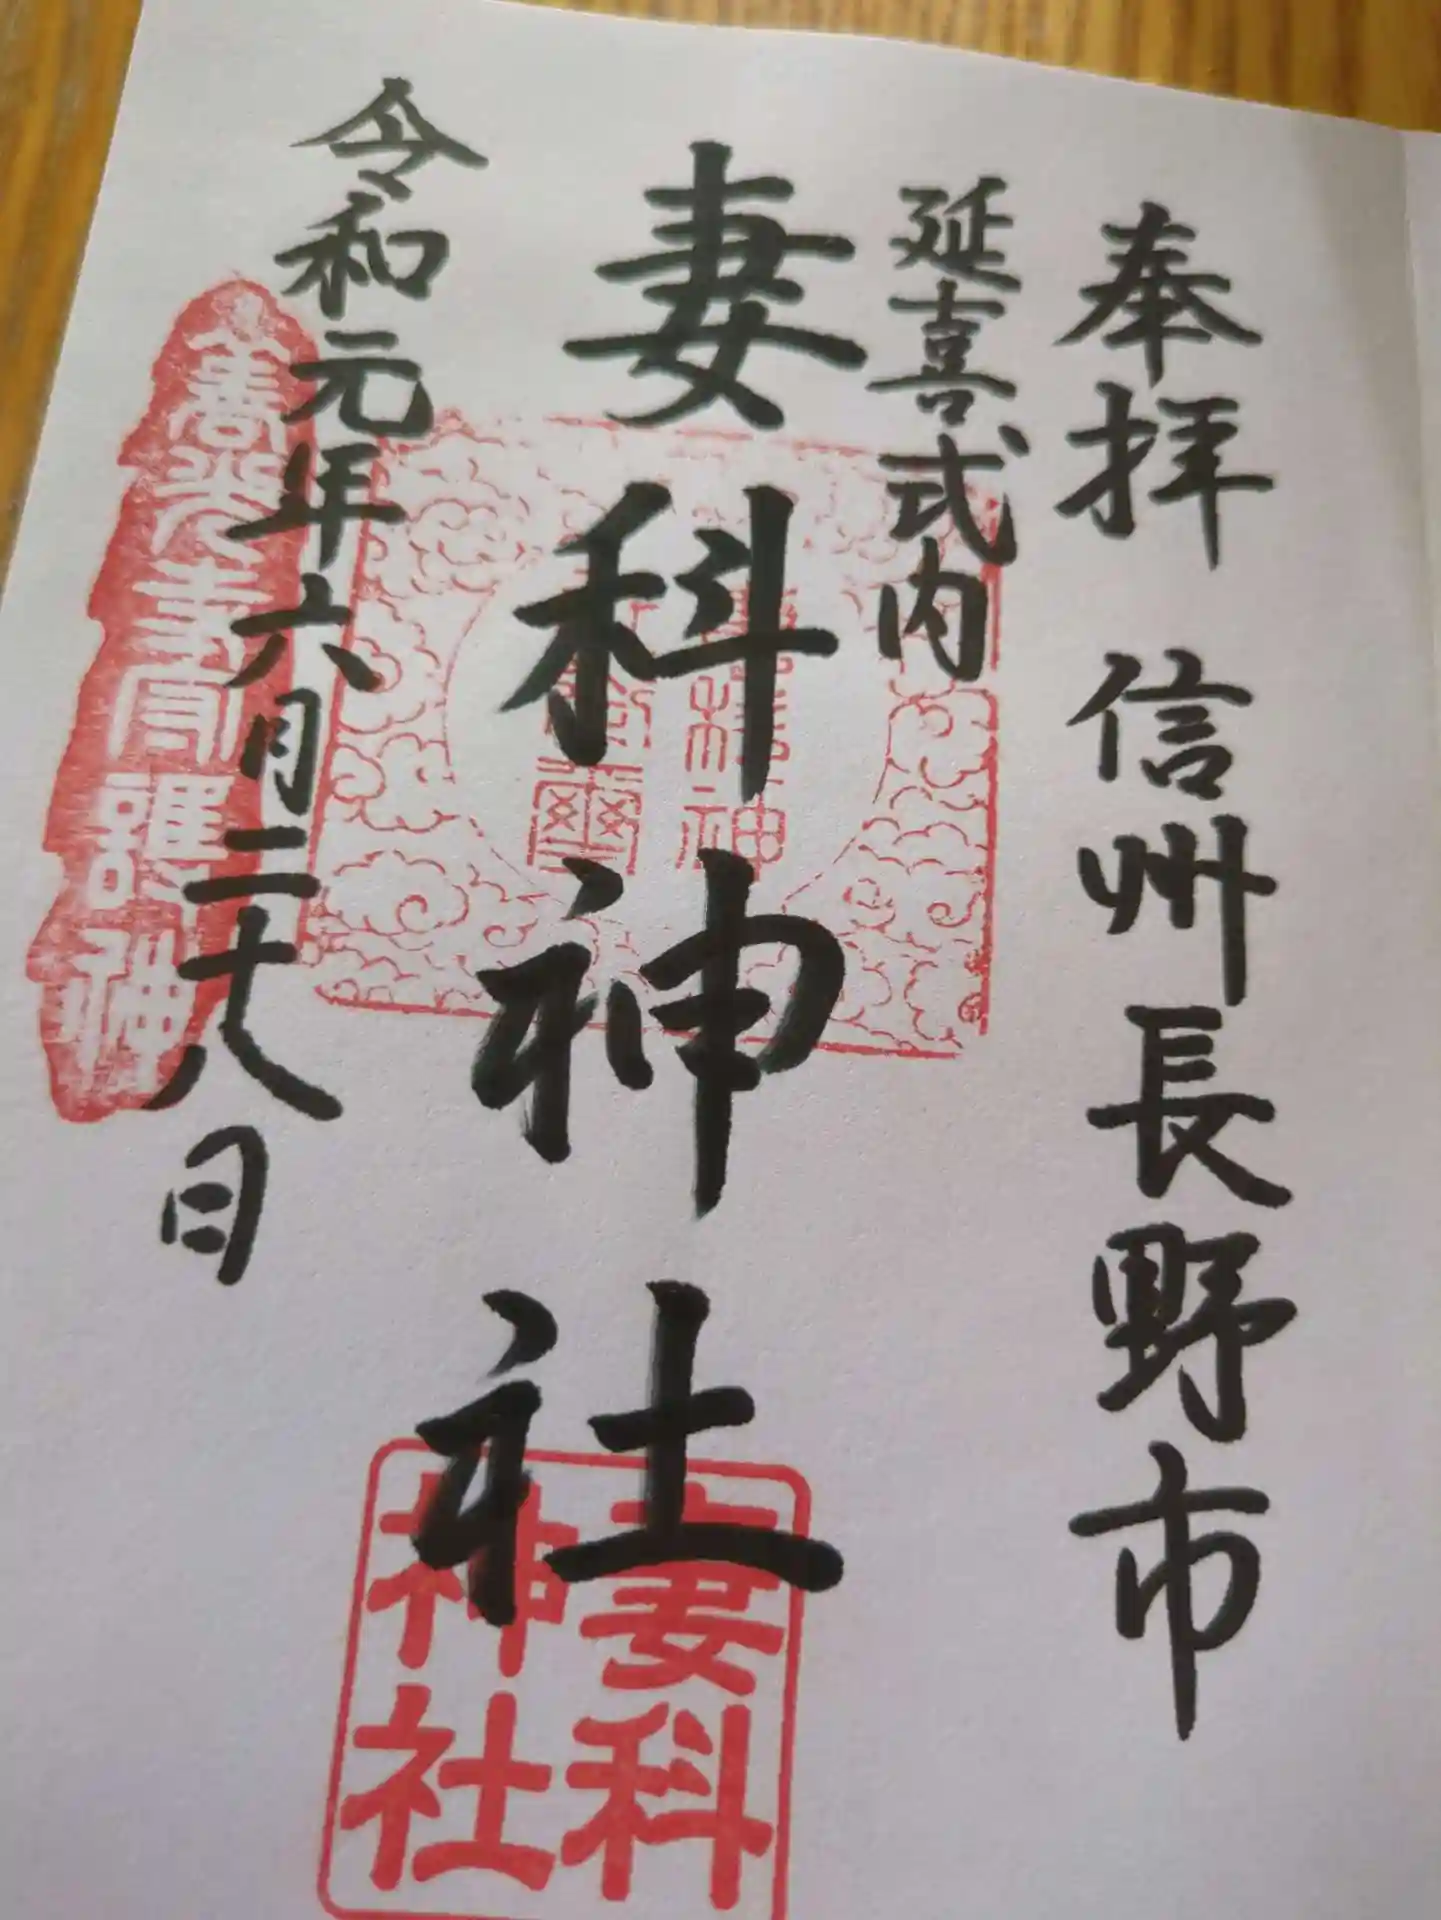 奉拝 信州長野市
延喜式内
妻科神社
令和元年六月二十八日
善光寺守護神
妻科
神社